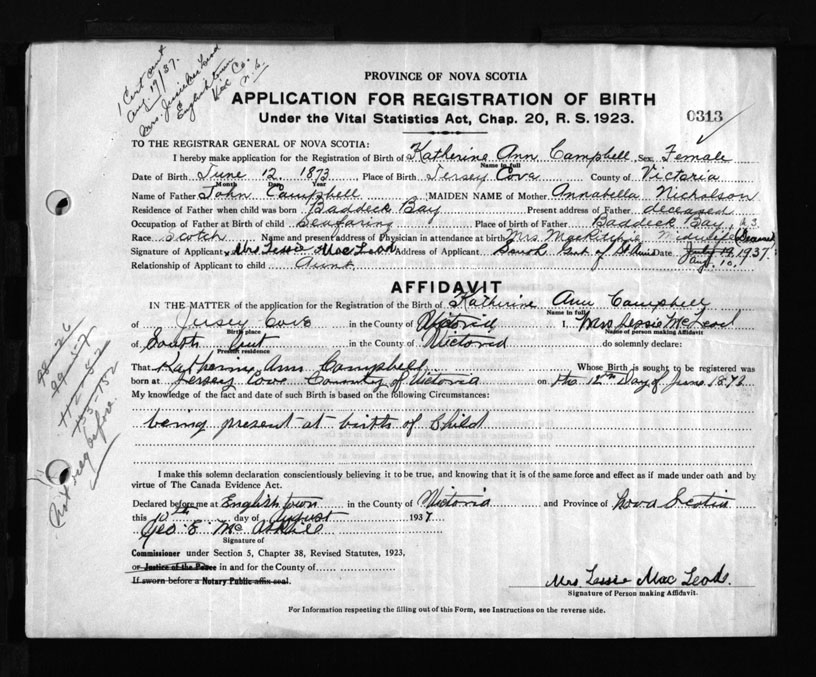 1 Cert sent
Aug 19/37.
Mrs. Jessie Mac Leod
Englishtown
Vic Co.
N.S.
PROVINCE OF NOVA SCOTIA
APPLICATION FOR REGISTRATION OF BIRTH
Under the Vital Statistics Act, Chap. 20, R. S. 1923.
0313
TO THE REGISTRAR GENERAL OF NOVA SCOTIA:
I hereby make application for the Registration of Birth of Katherine Ann Campbell Sex Female
Name in full
Date of Birth June 12 1873 Place of Birth Jersey Cove County of Victoria
Month Day Year
Name of Father John Campbell MAIDEN NAME of Mother Annabella Nicholson
Residence of Father when child was born Baddeck Bay Present address of Father deceased
Occupation of Father at Birth of child Seafaring Place of birth of Father Baddeck Bay, N.S.
Race Scotch Name and present address of Physician in attendance at birth Mrs. Midwife Deceased
Signature of Applicant Mrs Lessie Mac Leod Address of Applicant South Gut of St Anns Date July 19, 1937.
Aug. 10,
Relationship of Applicant to child Aunt
AFFIDAVIT
IN THE MATTER of the application for the Registration of the Birth of Katherine Ann Campbell
Name in full
of Jersey Cove in the County of Victoria I, Mrs Lessie McLeod
Birth place Name of person making Affidavit
of South Gut in the County of Victoria do solemnly declare:
Present residence
That Katherine Ann Campbell Whose Birth is sought to be registered was
born at Jersey Cove County of Victoria on the 12th Day of June 1873
My knowledge of the fact and date of such Birth is based on the following Circumstances:
being present at birth of Child
I make this solemn declaration conscientiously believing it to be true, and knowing that it is of the same force and effect as if made under oath and by
virtue of The Canada Evidence Act.
Declared before me at Englishtown in the County of Victoria and Province of Nova Scotia
this 10th day of August 1937
Geo. E. Mc Askill
Signature of
Commissioner under Section 5, Chapter 38, Revised Statutes, 1923,
or Justice of the Peace in and for the County of
If sworn before a Notary Public affix seal.
Mrs. Lessie Mac Leod.
Signature of Person making Affidavit.
For Information respecting the filling out of this Form, see Instructions on the reverse side.
Not reg before.